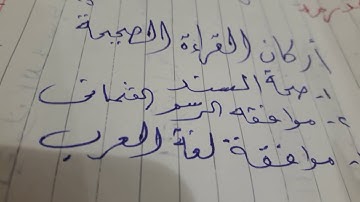 أركان القراءة الصحيحة
١- صحة السند
٢- موافقه الرسم العثماني
- موافقة لغة العرب